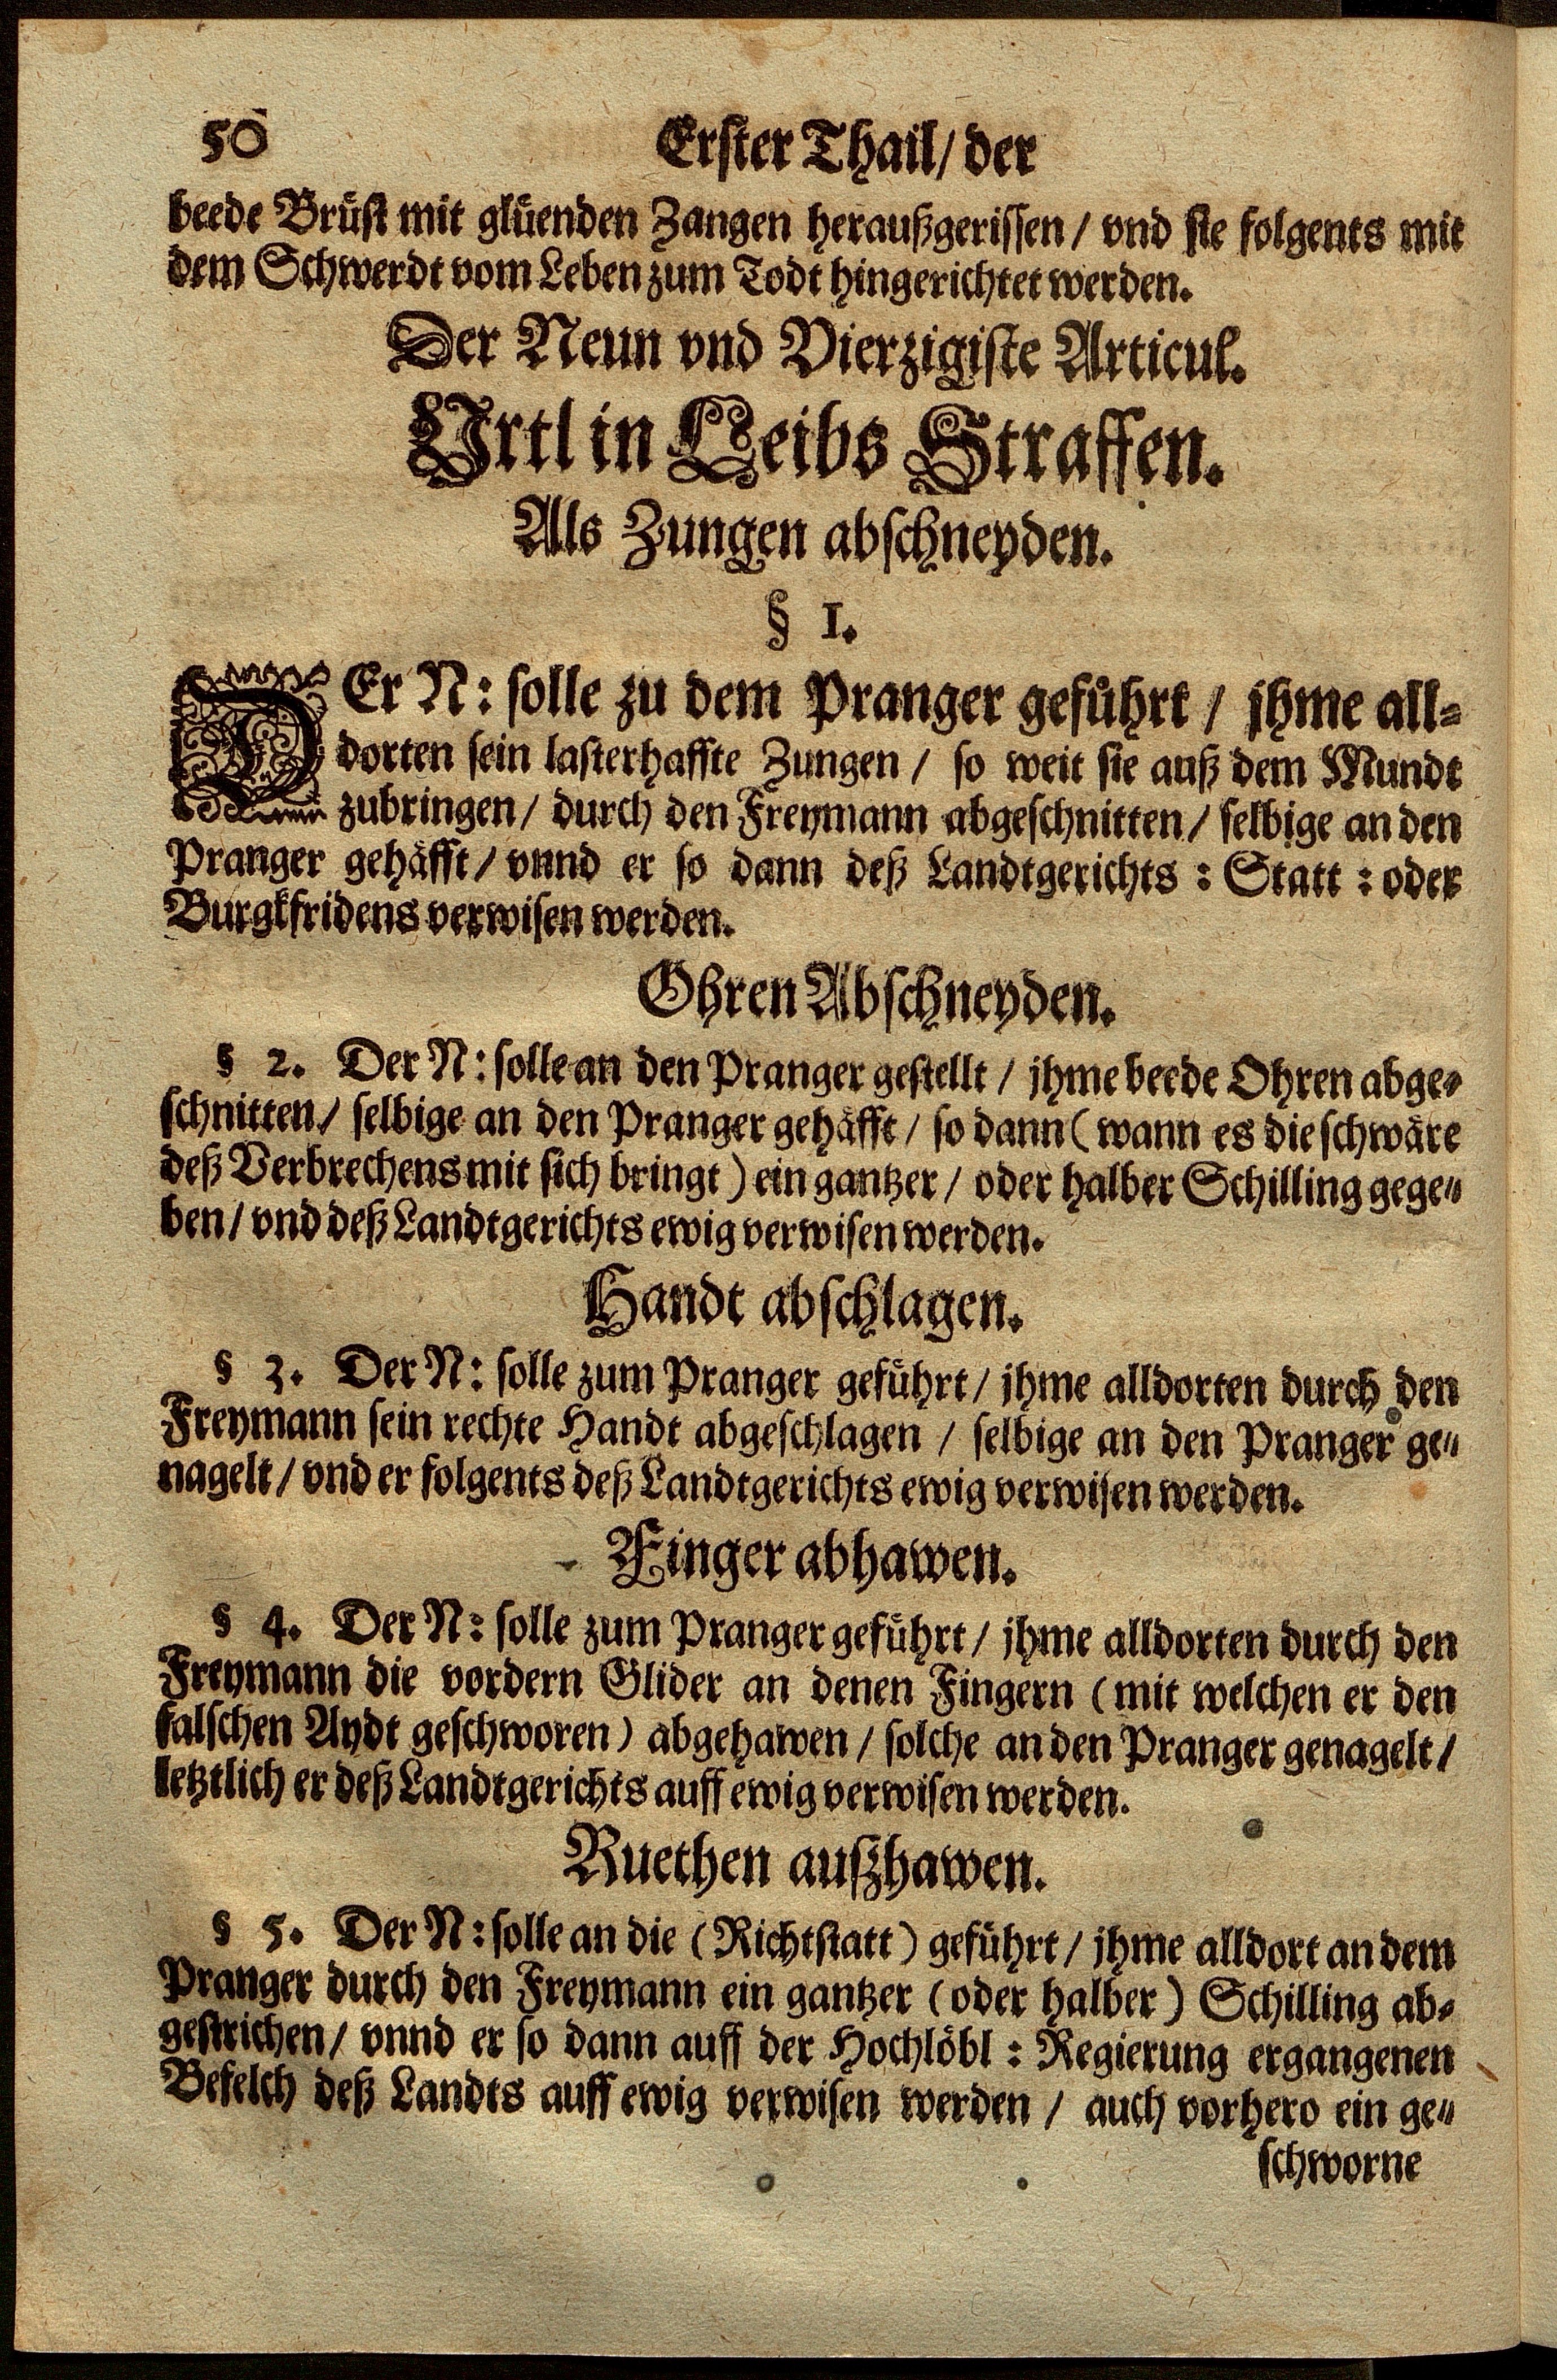 50
Erster Thail/ der
beede Brüst mit glüenden Zangen heraußgerissen / vnd sie folgents mit
dem Schwerdt vom Leben zum Todt hingerichtet werden.
Der Neun vnd Vierzigiste Articul.
Vrtl in Leibs Straffen.
Als Zungen abschneyden.
§ 1.
DEr N: solle zu dem Pranger geführt / jhme all-
dorten sein lasterhaffte Zungen / so weit sie auß dem Mundt
zubringen / durch den Freymann abgeschnitten / selbige an den
Pranger gehäfft / vnnd er so dann deß Landtgerichts : Statt : oder
Burgkfridens verwisen werden.
Ohren Abschneyden.
§ 2. Der N: solle an den Pranger gestellt / jhme beede Ohren abge-
schnitten / selbige an den Pranger gehäfft / so dann ( wann es die schwäre
deß Verbrechens mit sich bringt ) ein gantzer / oder halber Schilling gege-
ben / vnd deß Landtgerichts ewig verwisen werden.
Handt abschlagen.
§ 3. Der N: solle zum Pranger geführt / jhme alldorten durch den
Freymann sein rechte Handt abgeschlagen / selbige an den Pranger ge-
nagelt / vnd er folgents deß Landtgerichts ewig verwisen werden.
Finger abhawen.
§ 4. Der N: solle zum Pranger geführt / jhme alldorten durch den
Freymann die vordern Glider an denen Fingern ( mit welchen er den
falschen Aydt geschworen ) abgehawen / solche an den Pranger genagelt /
letztlich er deß Landtgerichts auff ewig verwisen werden.
Ruethen außhawen.
§ 5. Der N: solle an die ( Richtstatt ) geführt / jhme alldort an dem
Pranger durch den Freymann ein gantzer ( oder halber ) Schilling ab-
gestrichen / vnnd er so dann auff der Hochlöbl : Regierung ergangenen
Befelch deß Landts auff ewig verwisen werden / auch vorhero ein ge-
schworne